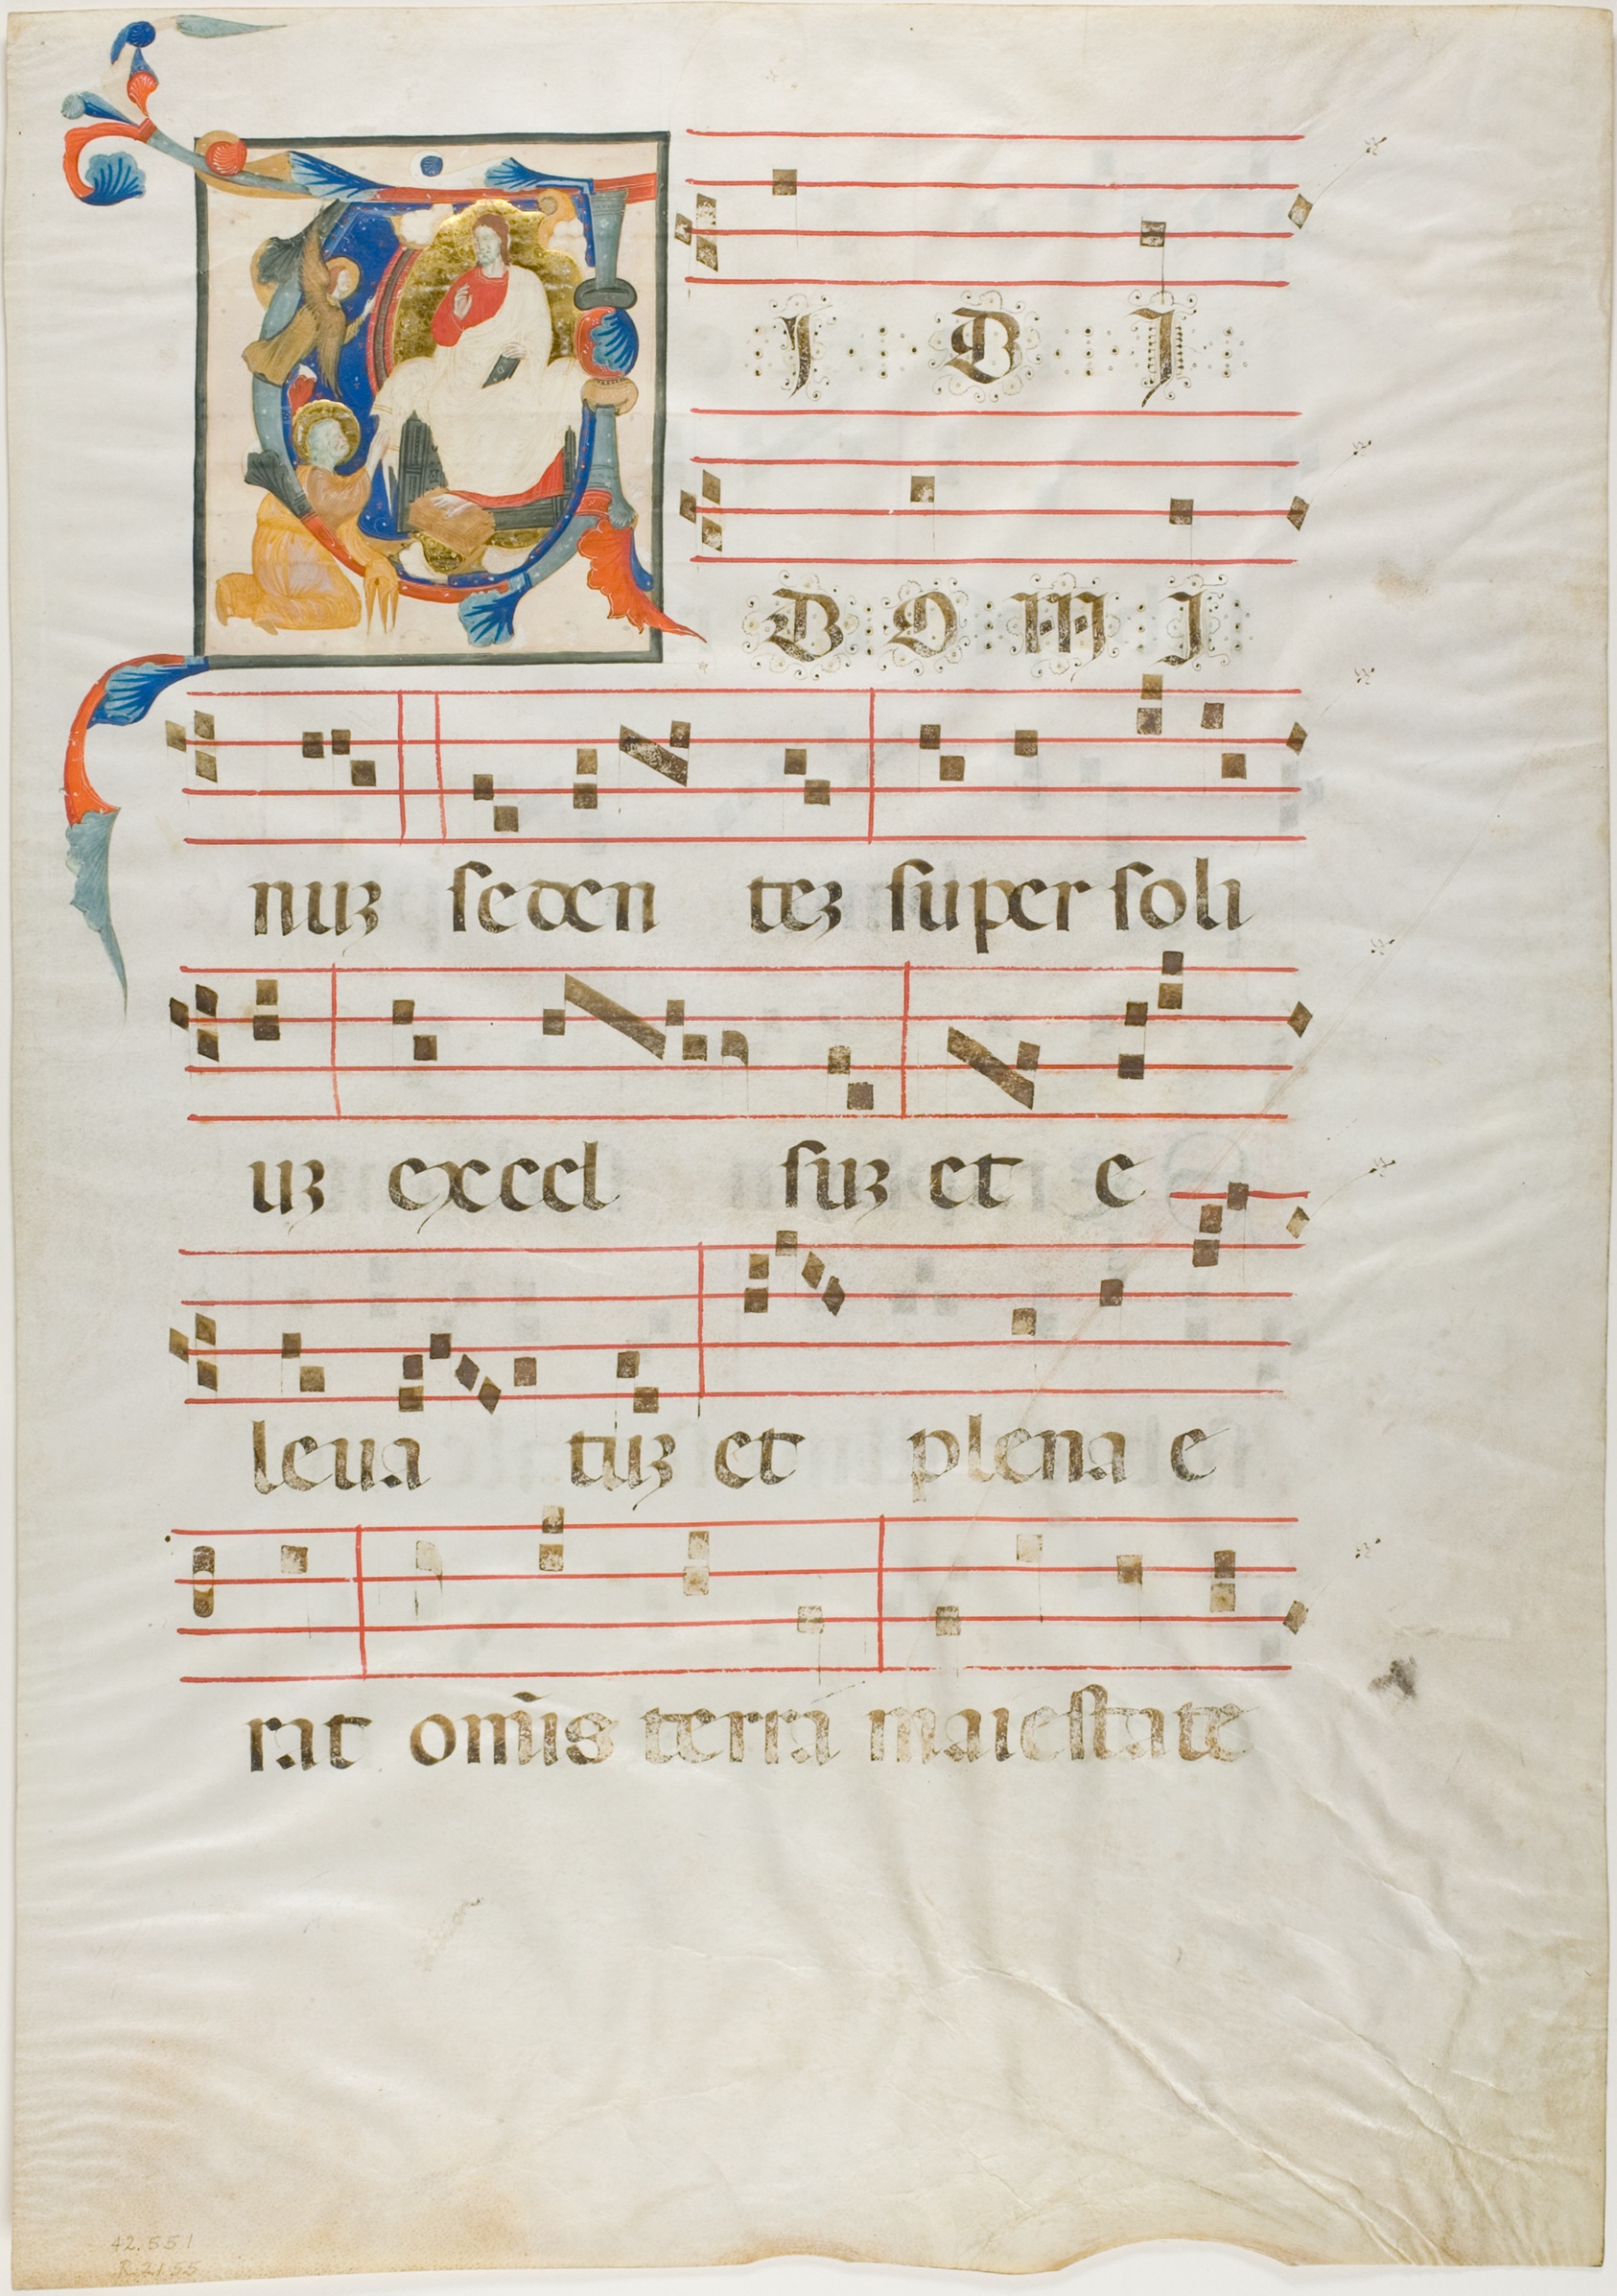 VIDI
DOMI
nuȝ seden teȝ super soli
uȝ excel suȝ et e
leua tuȝ et plena e
rat om̄is terra maiestate
42.551
R.2155